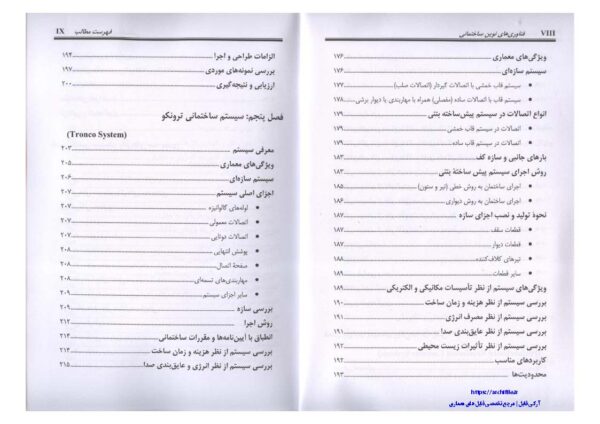 VIII فناوری‌های نوین ساختمانی
ویژگی‌های معماری ۱۷۶
سیستم سازه‌ای ۱۷۶
• سیستم قاب خمشی با اتصالات گیردار (اتصالات صلب) ۱۷۷
• سیستم قاب با اتصالات ساده (مفصلی) همراه با مهاربندی یا دیوار برشی ۱۷۸
انواع اتصالات در سیستم پیش‌ساخته بتنی ۱۷۹
• اتصالات در سیستم قاب خمشی ۱۷۹
• اتصالات در سیستم قاب ساده ۱۷۹
بارهای جانبی و سازه کف ۱۸۳
روش اجرای سیستم پیش ساختهٔ بتنی ۱۸۳
• اجرای ساختمان به روش خطی (تیر و ستون) ۱۸۵
• اجرای ساختمان به روش دیواری ۱۸۶
نحوهٔ تولید و نصب اجزای سازه ۱۸۷
• قطعات سقف ۱۸۷
• قطعات دیوار ۱۸۷
• تیرهای کلاف‌کننده ۱۸۸
• سایر قطعات ۱۸۹
ویژگی‌های سیستم از نظر تأسیسات مکانیکی و الکتریکی ۱۸۹
بررسی سیستم از نظر هزینه و زمان ساخت ۱۹۰
بررسی سیستم از نظر مصرف انرژی ۱۹۱
بررسی سیستم از نظر عایق‌بندی صدا ۱۹۱
بررسی سیستم از نظر تأثیرات زیست محیطی ۱۹۲
کاربردهای مناسب ۱۹۲
محدودیت‌ها ۱۹۳
https://archifile.ir
آرکی فایل | مرجع تخصصی فایل های معماری
فهرست مطالب IX
الزامات طراحی و اجرا ۱۹۴
بررسی نمونه‌های موردی ۱۹۷
ارزیابی و نتیجه‌گیری ۲۰۰
فصل پنجم: سیستم ساختمانی ترونکو
(Tronco System)
معرفی سیستم ۲۰۳
ویژگی‌های معماری ۲۰۵
سیستم سازه‌ای ۲۰۶
اجزای اصلی سیستم ۲۰۷
• لوله‌های گالوانیزه ۲۰۷
• اتصالات معمولی ۲۰۷
• اتصالات دوتایی ۲۰۷
• پوشش انتهایی ۲۰۸
• صفحهٔ اتصال ۲۰۸
• مهاربندی‌های تسمه‌ای ۲۰۸
• سایر اجزای سیستم ۲۰۹
بررسی سازه ۲۰۹
روش اجرا ۲۱۲
انطباق با آیین‌نامه‌ها و مقررات ساختمانی ۲۱۴
بررسی سیستم از نظر هزینه و زمان ساخت ۲۱۴
بررسی سیستم از نظر انرژی و عایق‌بندی صدا ۲۱۵